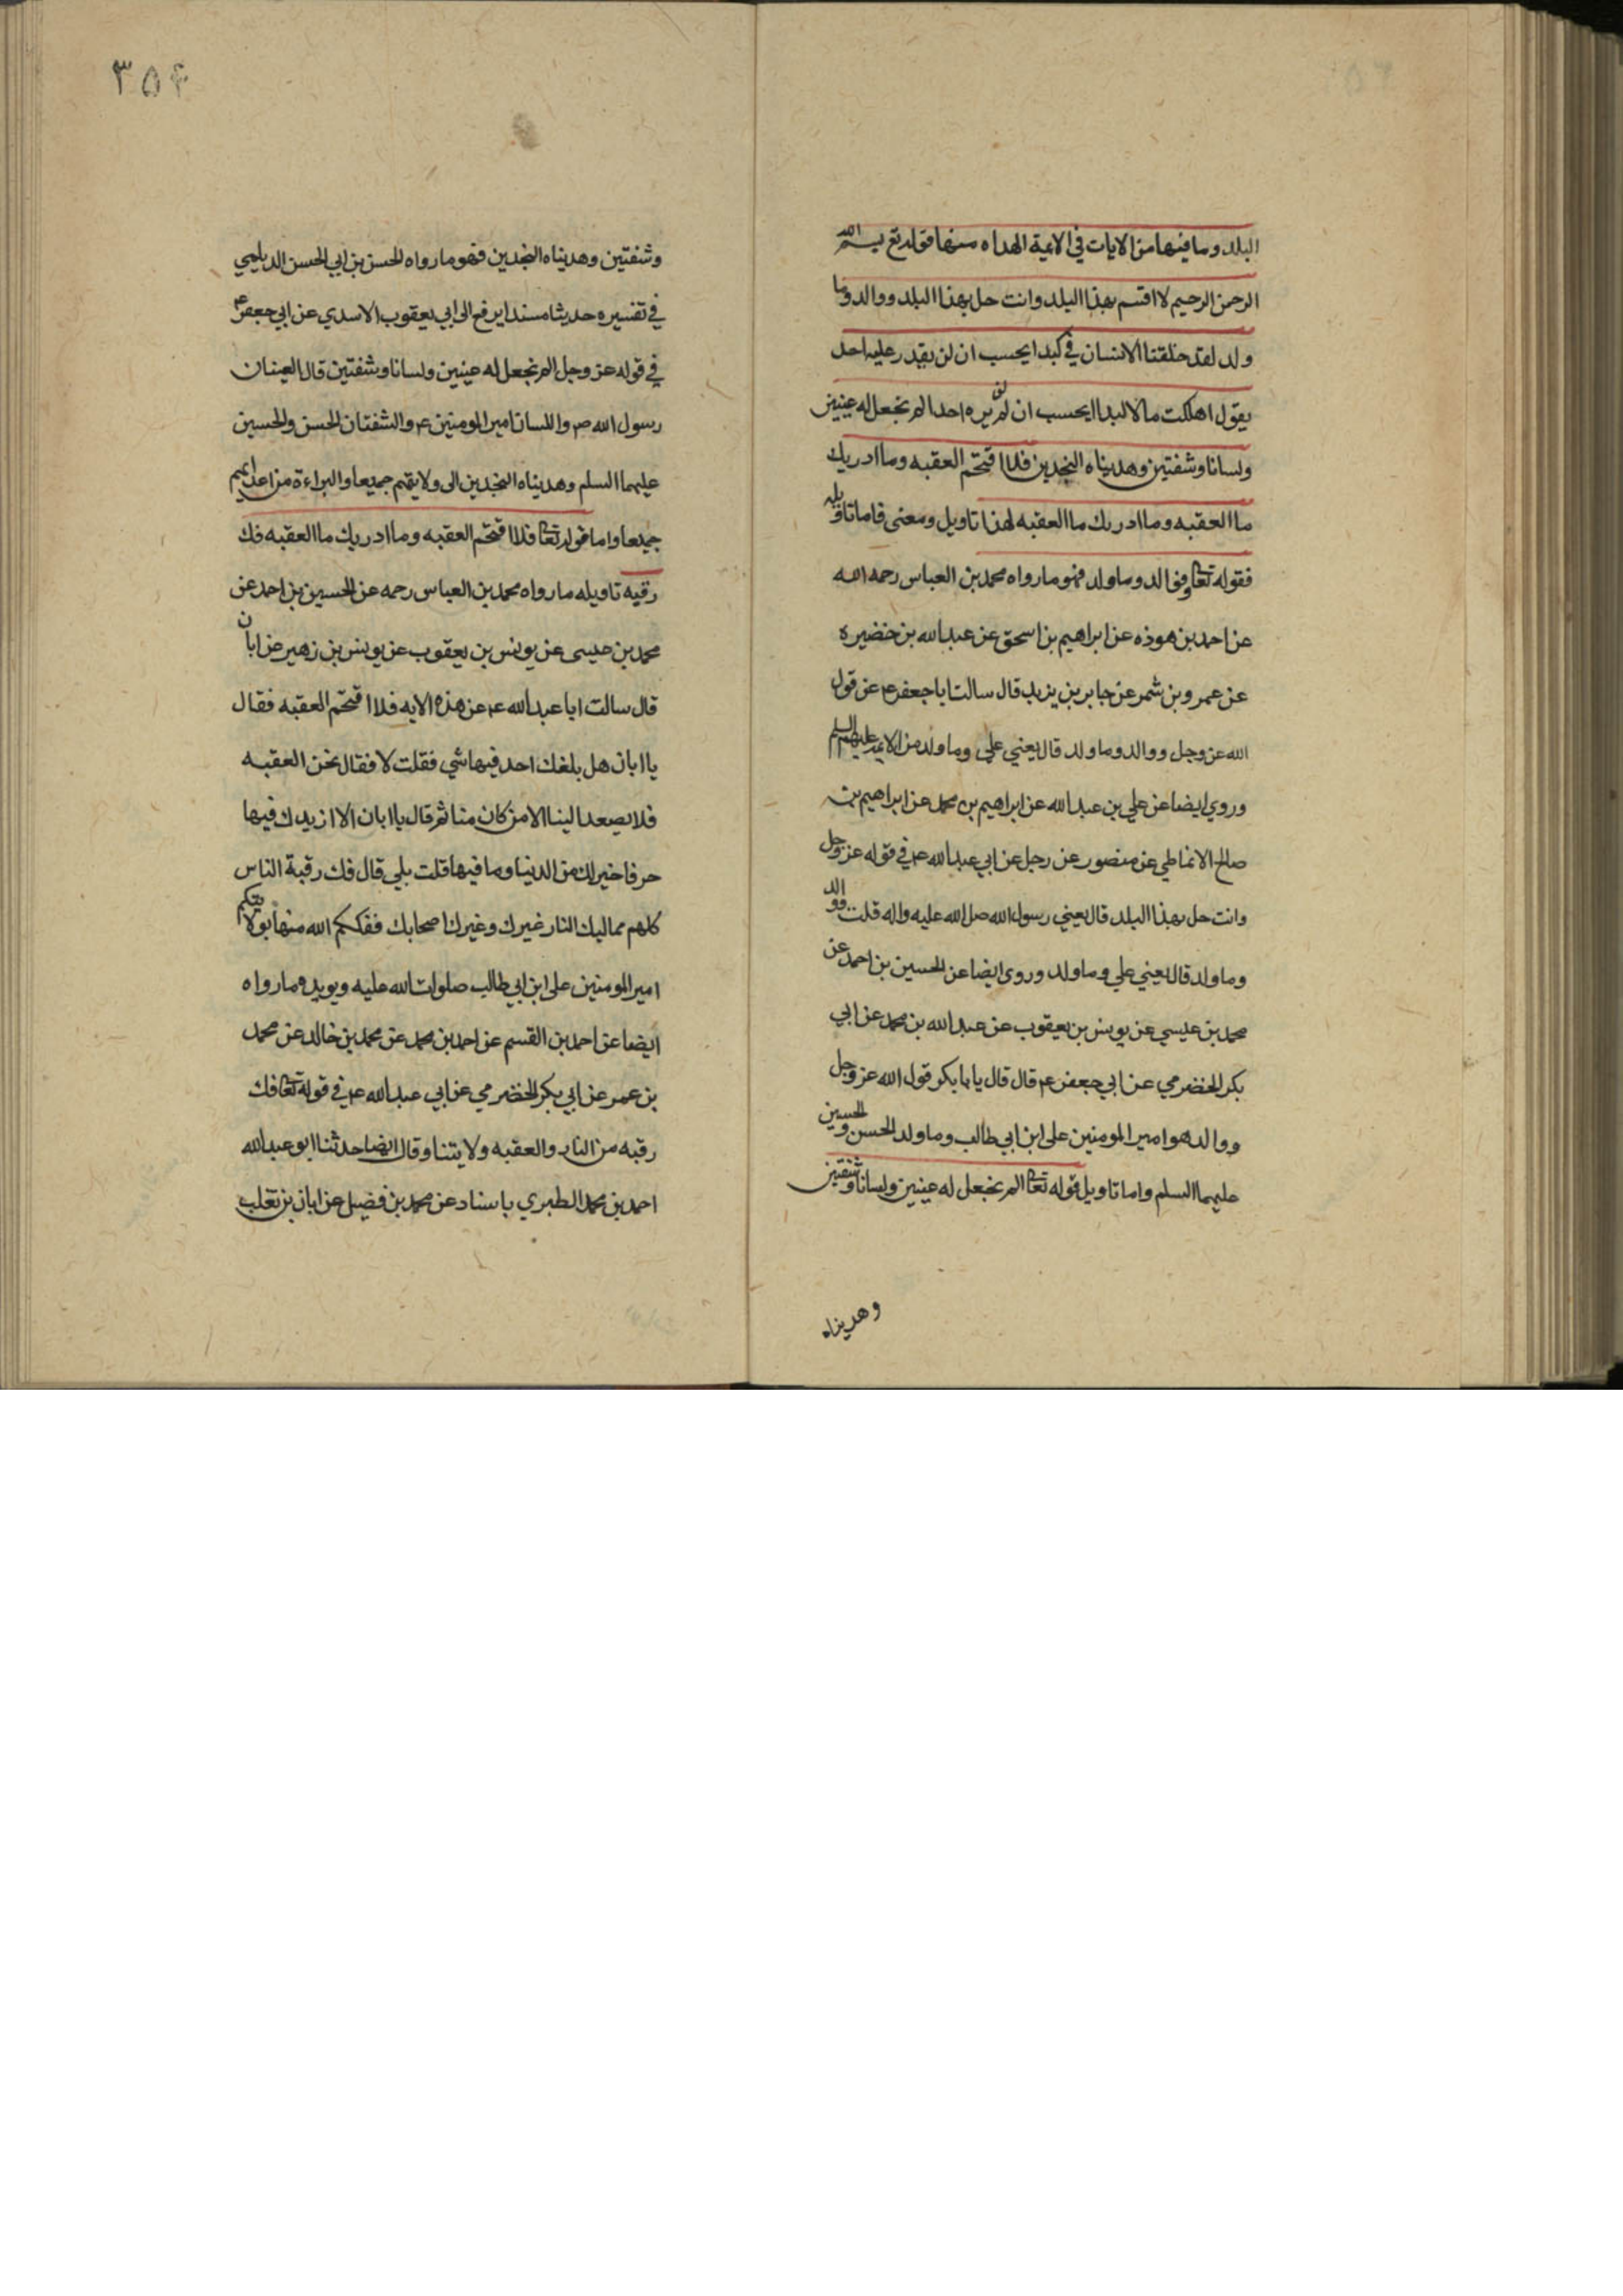 البلد وما فيها من الايات في الايمة الهداه منها قوله تع بسم الله
الرحمن الرحيم لا اقسم بهذا البلد وانت حل بهذا البلد ووالد وما
ولد لقد خلقنا الانسان في كبد ايحسب ان لن يقدر عليه احد
يقول اهلكت مالا لبدا ايحسب ان لم يره احد الم نجعل له عينين
ولسانا وشفتين وهديناه النجدين فلا اقتحم العقبه وما ادريك
ما العقبه وما ادريك ما العقبه لهذا تاويل ومعنى فاما تاويله
فقوله تعا ووالد وما ولد فهو ما رواه محمد بن العباس رحمه الله
عن احمد بن هوذه عن ابراهيم بن اسحق عن عبد الله بن حضيره
عن عمرو بن شمر عن جابر بن يزيد قال سالت ابا جعفر ع عن قول
الله عز وجل ووالد وما ولد قال يعني علي وما ولد من الايمة عليهم السلم
وروي ايضا عن علي بن عبد الله عن ابراهيم بن محمد عن ابراهيم بن
صالح الانماطي عن منصور عن رجل عن ابي عبد الله ع في قوله عز وجل
وانت حل بهذا البلد قال يعني رسول الله صل الله عليه واله قلت ووالد
وما ولد قال يعني علي وما ولد وروى ايضا عن الحسين بن احمد عن
محمد بن عيسي عن يونس بن يعقوب عن عبد الله بن محمد عن ابي
بكر الحضرمي عن ابي جعفر ع قال قال يا با بكر قول الله عز وجل
ووالد هو امير المومنين على ابن ابي طالب وما ولد الحسن والحسين
عليهما السلم واما تاويل قوله تعا الم نجعل له عينين ولسانا وشفتين
وهديناه
٣٥٤
وشفتين وهديناه النجدين فهو ما رواه الحسن بن ابي الحسن الديلمي
في تفسيره حديثا مسندا يرفع الى ابي يعقوب الاسدي عن ابي جعفر ع
في قوله عز وجل الم نجعل له عينين ولسانا وشفتين قال العينان
رسول الله ص واللسان امير المومنين ع والشفتان الحسن والحسين
عليهما السلم وهديناه النجدين الى ولايتهم جميعا والبراءة من اعدايهم
جميعا واما قوله تعا فلا اقتحم العقبه وما ادريك ما العقبه فك
رقبه تاويله ما رواه محمد بن العباس رحمه عن الحسين بن احمد عن
محمد بن عيسى عن يونس بن يعقوب عن يونس بن زهير عن ابان
قال سالت ابا عبد الله ع عن هذه الايه فلا اقتحم العقبه فقال
يا ابان هل بلغك احد فيها شي فقلت لا فقال نحن العقبه
فلا يصعد الينا الا من كان منا ثم قال يا ابان الا ازيدك فيها
حرفا خير لك من الدنيا وما فيها قلت بلي قال فك رقبة الناس
كلهم مماليك النار غيرك وغير اصحابك ففككم الله منها بولايتكم
امير المومنين على ابن ابي طالب صلوات الله عليه ويويده ما رواه
ايضا عن احمد بن القسم عن احمد بن محمد عن محمد بن خالد عن محمد
بن عمر عن ابي بكر الحضرمي عن ابي عبد الله ع في قوله تعا فك
رقبه من النار والعقبه ولايتنا وقال ايضا حدثنا ابو عبد الله
احمد بن محمد الطبري باسناد عن محمد بن فضيل عن ابان بن تغلب